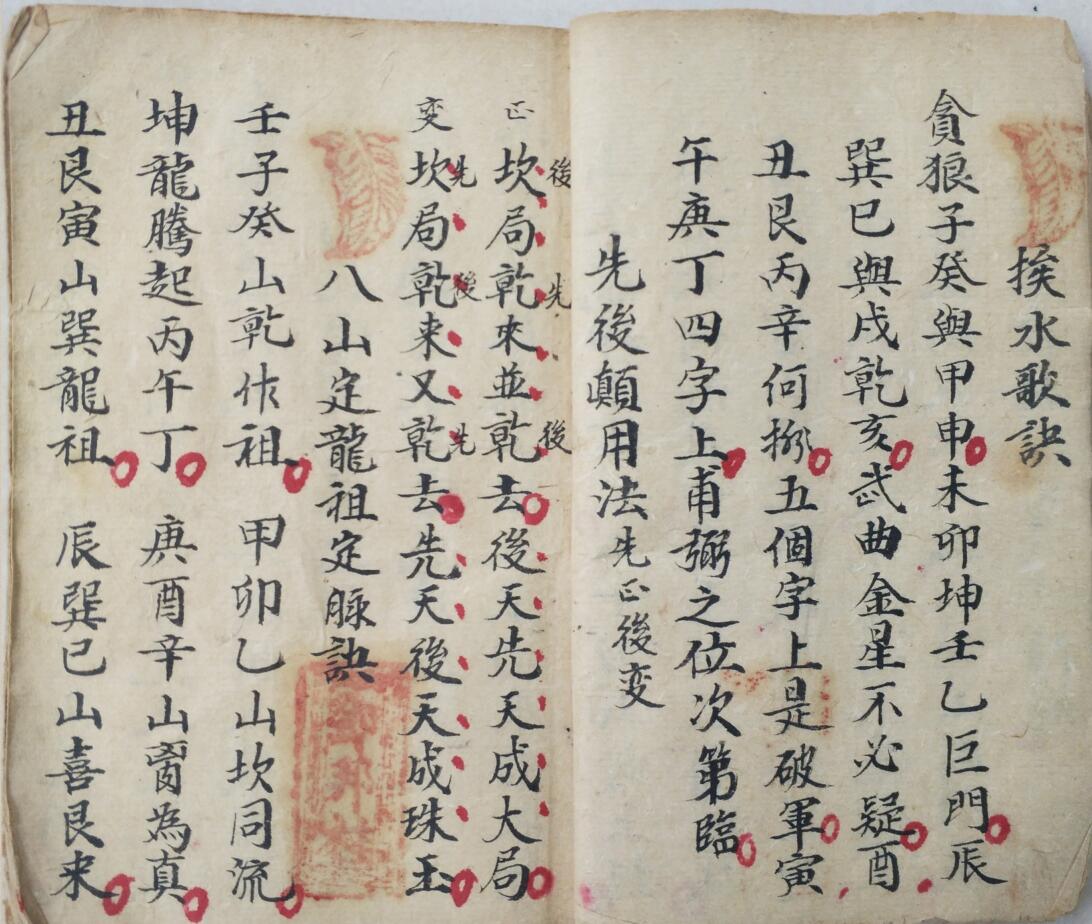 挨水歌訣
貪狼子癸與甲申未卯坤壬乙巨門辰
巽巳與戌乾亥武曲金星不必疑酉
丑艮丙辛何挪五個字上是破軍寅
午庚丁四字上甫弼之位次第臨
先後顛用法先正後变
正坎局乾來並乾去後天先天成大局
後先後
变坎局乾来又乾去先天後天成珠玉
先後先
八山定龍祖定脉訣
壬子癸山乾作祖 甲卯乙山坎同流
坤龍騰起丙午丁 庚酉辛山為真
丑艮寅山巽龍祖 辰巽巳山喜艮来